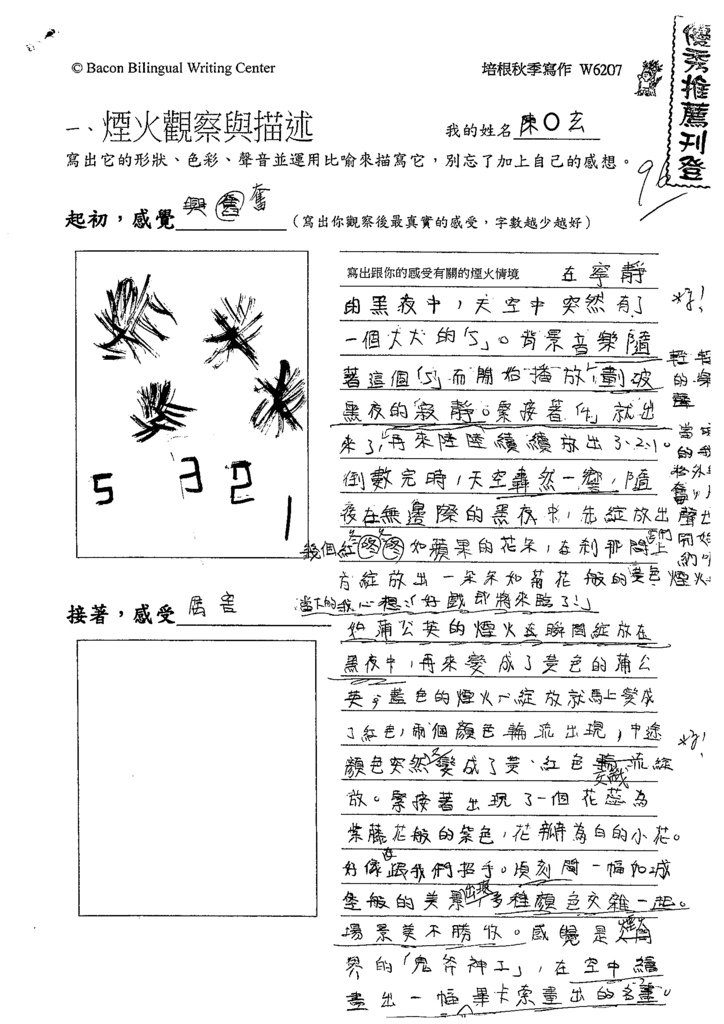 © Bacon Bilingual Writing Center
培根秋季寫作 W6207
優秀推薦刊登
一、煙火觀察與描述
我的姓名 陳○玄
寫出它的形狀、色彩、聲音並運用比喻來描寫它，別忘了加上自己的感想。
起初，感覺 興奮 (寫出你觀察後最真實的感受，字數越少越好)
寫出跟你的感受有關的煙火情境 在寧靜
由黑夜中，天空中突然有了
一個大大的「5」。背景音樂隨
著這個「5」而開始播放，劃破
黑夜的寂靜。緊接著「4」就出
來了，再來陸陸續續放出3、2、1。
倒數完時，天空轟然一響，隨
夜在無邊際的黑夜中，先綻放出
幾個紅咚咚如蘋果的花朵，在剎那間
方綻放出一朵朵如菊花般的黃色煙火
5 3 2 1
接著，感受 厲害
當下的我心想：「好戲即將來臨了！」
如蒲公英的煙火在瞬間綻放在
黑夜中，再來變成了黃色的蒲公
英，藍色的煙火一綻放就馬上變成
了紅色，兩個顏色輪流出現，中途
顏色突然又變成了黃、紅色交織綻
放。緊接著出現了一個花蕊為
紫藤花般的紫色，花瓣為白的小花。
好像在跟我們招手。頃刻間一幅如城
堡般的美景出現，多種顏色交雜一起。
場景美不勝收。感覺是人間
界的「鬼斧神工」，在空中繪
畫出一幅畢卡索畫出的名畫。